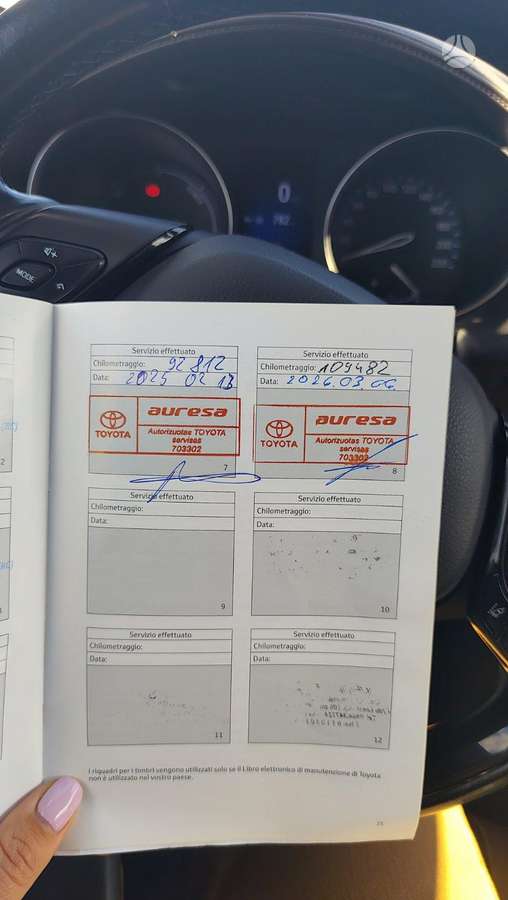 MODE
Servizio effettuato
Chilometraggio: 92 812
Data: 2025 02 13
TOYOTA
auresa
Autorizuotas TOYOTA
servisas
703302
7
Servizio effettuato
Chilometraggio: 109482
Data: 2026.03.06.
TOYOTA
auresa
Autorizuotas TOYOTA
servisas
703302
8
Servizio effettuato
Chilometraggio:
Data:
9
Servizio effettuato
Chilometraggio:
Data:
10
Servizio effettuato
Chilometraggio:
Data:
11
Servizio effettuato
Chilometraggio:
Data:
12
I riquadri per i timbri vengono utilizzati solo se il Libro elettronico di manutenzione di Toyota
non è utilizzato nel vostro paese.